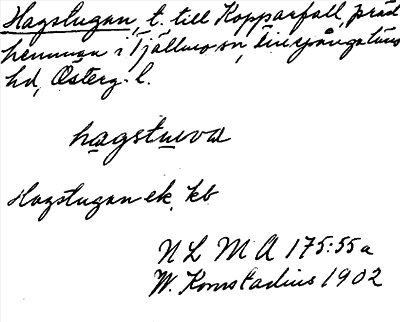 Hagstugan, t. till Kopparfall, präst
hemman i Tjällmo sn, Finspångaläns
hd, Österg. l.
hagstuvα
Hagstugan ek. kb
N L M A 175:55a
W. Kornstadius 1902